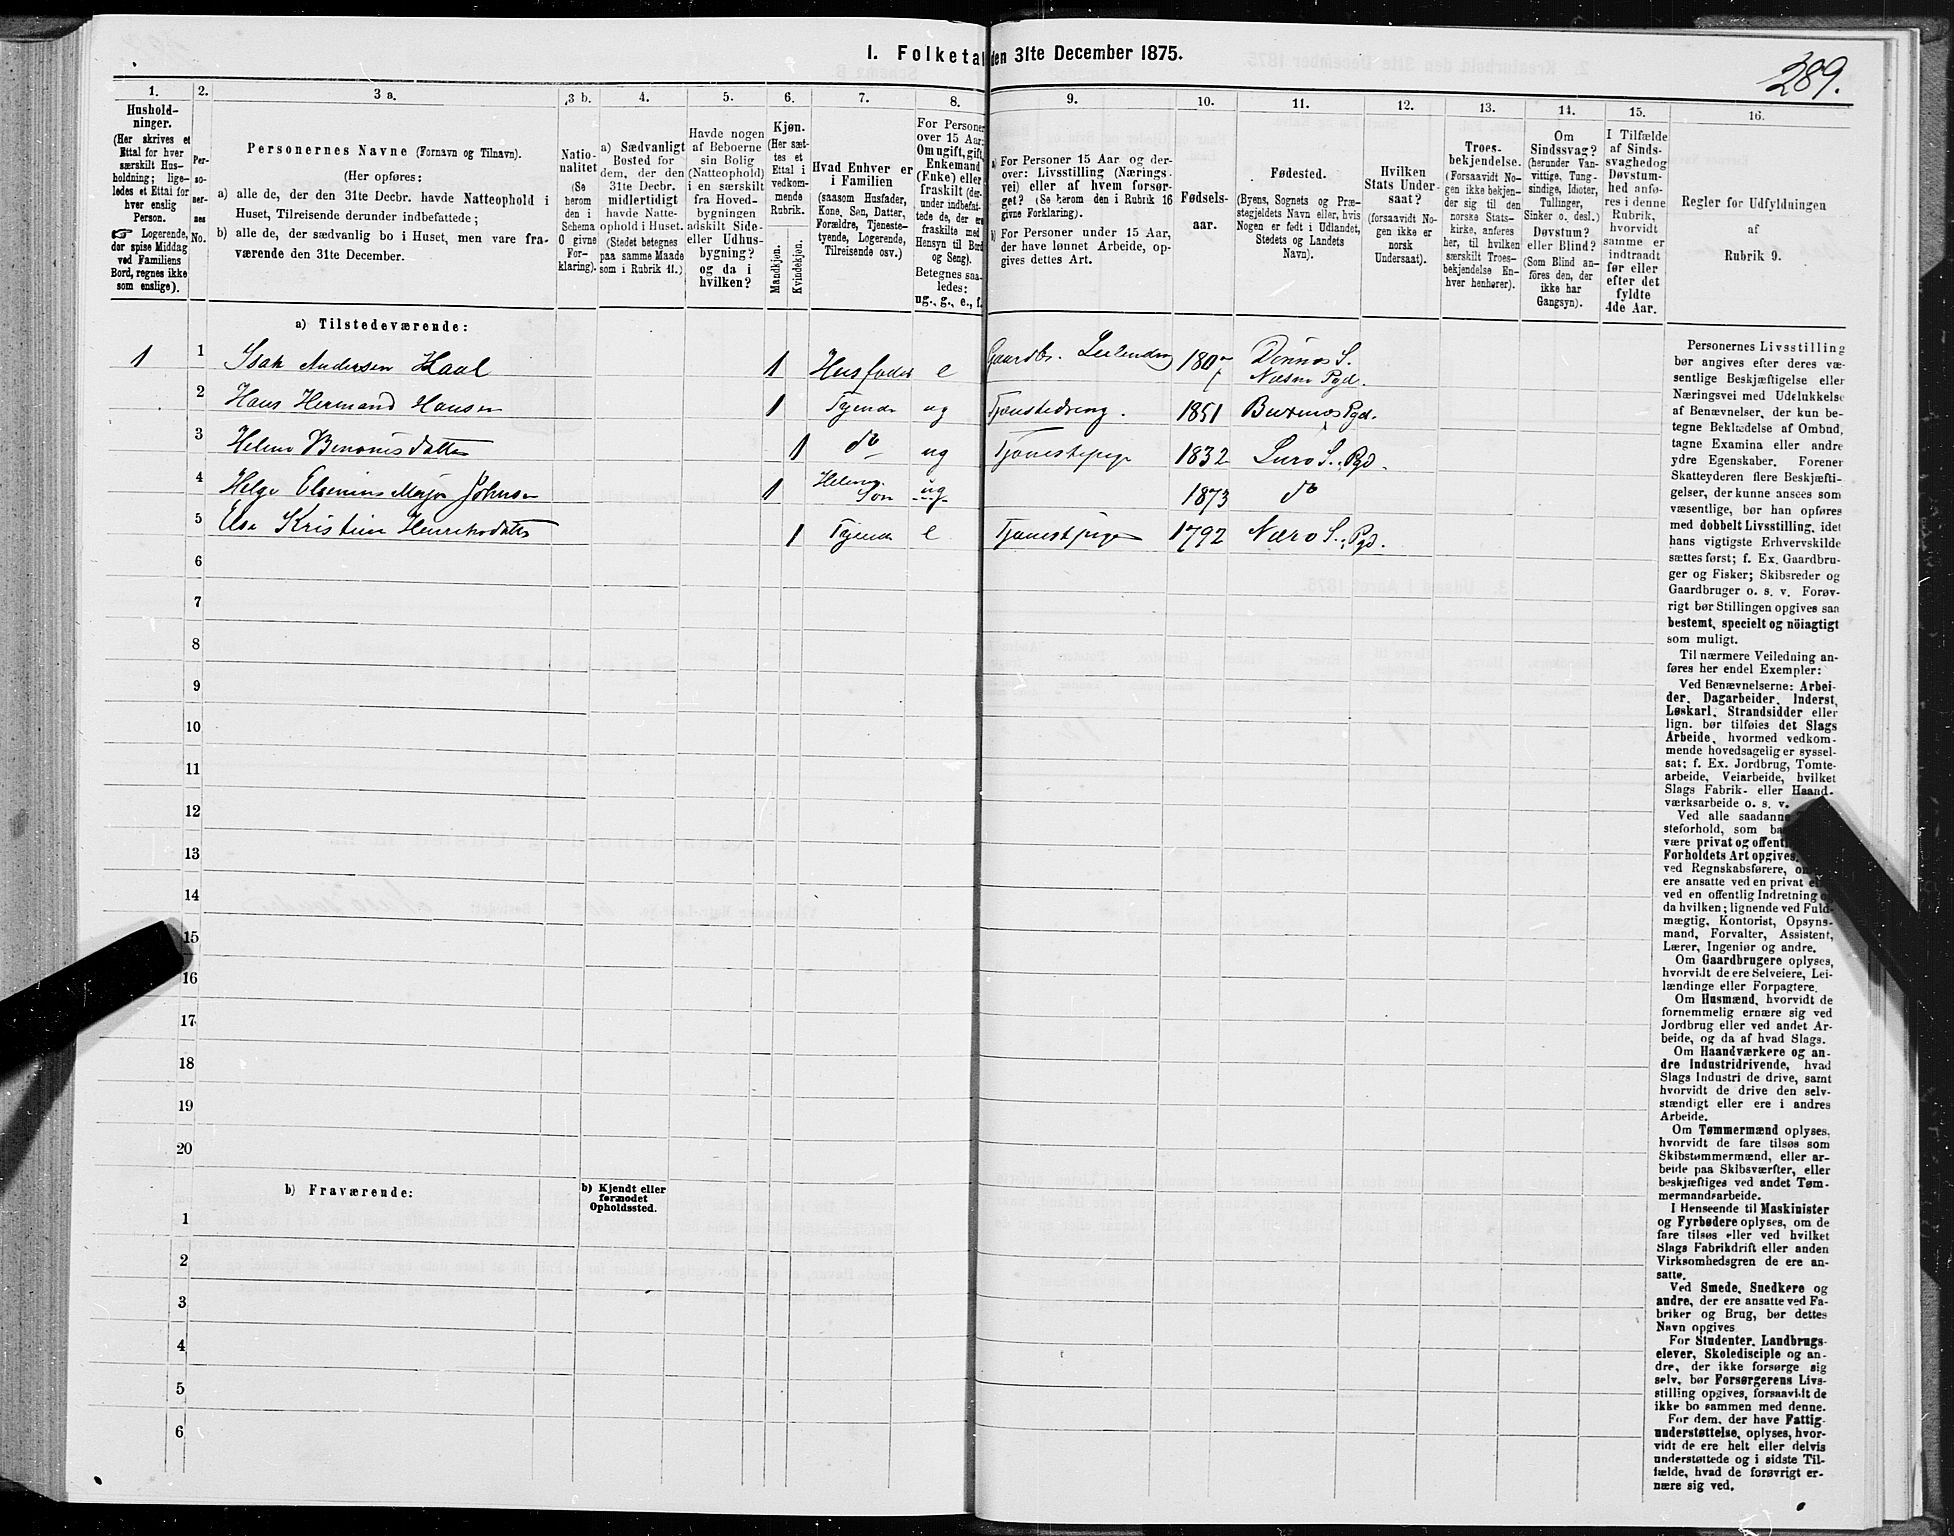 289.
I. Folketal den 31te December 1875.
1. 2. 3 a. 3 b. 4. 5. 6. 7. 8. 9. 10. 11. 12. 13. 14. 15. 16.
Hushold-
ninger.
(Her skrives et
Ettal for hver
særskilt Hus-
holdning; lige-
ledes et Ettal for
hver enslig
Person.
☞ Logerende,
der spise Middag
ved Familiens
Bord, regnes ikke
som enslige).
Per-
so-
ner-
nes
No.
Personernes Navne (Fornavn og Tilnavn).
(Her opføres:
a) alle de, der den 31te Decbr. havde Natteophold i
Huset, Tilreisende derunder indbefattede;
b) alle de, der sædvanlig bo i Huset, men vare fra-
værende den 31te December.
Natio-
nalitet
(Se
herom
den i
Schema
O givne
For-
klaring).
a) Sædvanligt
Bosted for
dem, der den
31te Decbr.
midlertidigt
havde Natte-
ophold i Huset.
(Stedet betegnes
paa samme Maade
som i Rubrik 11.)
Havde nogen
af Beboerne
sin Bolig
(Natteophold)
i en særskilt
fra Hoved-
bygningen
adskilt Side-
eller Udhus-
bygning?
og da i
hvilken?
Kjøn.
(Her sæt-
tes et
Ettal i
vedkom-
mende
Rubrik.
Mandkjøn.
Kvindekjøn.
Hvad Enhver er
i Familien
(saasom Husfader,
Kone, Søn, Datter,
Forældre, Tjeneste-
tyende, Logerende,
Tilreisende osv.)
For Personer
over 15 Aar:
Om ugift, gift,
Enkemand
(Enke) eller
fraskilt (der-
under indbefat-
tede de, der ere
fraskilte med
Hensyn til Bord
og Seng).
Betegnes saa-
ledes:
ug., g., e., f.
a) For Personer 15 Aar og der-
over: Livsstilling (Nærings-
vei) eller af hvem forsør-
get? (Se herom den i Rubrik 16
givne Forklaring).
b) For Personer under 15 Aar,
der have lønnet Arbeide, op-
gives dettes Art.
Fødsels-
aar.
Fødested.
(Byens, Sognets og Præ-
stegjeldets Navn eller, hvis
Nogen er født i Udlandet,
Stedets og Landets
Navn).
Hvilken
Stats Under-
saat?
(forsaavidt No-
gen ikke er
norsk
Undersaat).
Troes-
bekjendelse.
(Forsaavidt No-
gen ikke bekjen-
der sig til den
norske Stats-
kirke, anføres
her, til hvilken
særskilt Troes-
bekjendelse En-
hver henhører).
Om
Sindssvag?
(herunder Van-
vittige, Tung-
sindige, Idioter,
Tullinger,
Sinker o. desl.)
Døvstum?
eller Blind?
(Som Blind an-
føres den, der
ikke har
Gangsyn).
I Tilfælde
af Sinds-
svaghedog
Døvstum-
hed anfø-
res i denne
Rubrik,
hvorvidt
samme er
indtraadt
før eller
efter det
fyldte
4de Aar.
Regler for Udfyldningen
af
Rubrik 9.
a) Tilstedeværende:
1 1 Isak Andersen Haal 1 Husfader e Gaardbr. Leilending Dønnes S.
Næsne Pgd.
2 Hans Hermand Hansen 1 Tyende ug Tjenestedreng. 1851 Pgd.
3 Helene Benonisdatter 1 do ug Tjenestepige 1832 Lurø S., Pgd.
4 Helge Johnsen 1 Helenes Søn ug 1873 do
5 Else Kristine Henriksdatter 1 Tyende e Tjenestepige 1792 Nærø S., Pgd.
6
7
8
9
10
11
12
13
14
15
16
17
18
19
20
b) Fraværende:
b) Kjendt eller
formodet
Opholdssted.
1
2
3
4
5
6
Personernes Livsstilling
bør angives efter deres væ-
sentlige Beskjæftigelse eller
Næringsvei med Udelukkelse
af Benævnelser, der kun be-
tegne Beklædelse af Ombud,
tagne Examina eller andre
ydre Egenskaber. Forener
Skatteyderen flere Beskjæfti-
gelser, der kunne ansees som
væsentlige, bør han opføres
med dobbelt Livsstilling, idet
hans vigtigste Erhvervskilde
sættes først; f. Ex. Gaardbru-
ger og Fisker; Skibsreder og
Gaardbruger o. s. v. Forøv-
rigt bør Stillingen opgives saa
bestemt, specielt og nöiagtigt
som muligt.
Til nærmere Veiledning an-
føres her endel Exempler:
Ved Benævnelserne: Arbei-
der, Dagarbeider, Inderst,
Løskarl, Strandsidder eller
lign. bør tilføies det Slags
Arbeide, hvormed vedkom-
mende hovedsagelig er syssel-
sat; f. Ex. Jordbrug, Tomte-
arbeide, Veiarbeide, hvilket
Slags Fabrik- eller Haand-
værksarbeide o. s. v.
Ved alle saadanne
steforhold, som
være privat og
Forholdets Art opgives,
ved Regnskabsførere,
ere ansatte ved en privat
ved en offentlig Indretning
da hvilken; lignende ved Fuld-
mægtig, Kontorist, Opsyns-
mand, Forvalter, Assistent,
Lærer, Ingeniør og andre.
Om Gaardbrugere oplyses,
hvorvidt de ere Selveiere, Lei-
lændinge eller Forpagtere.
Om Husmænd, hvorvidt de
fornemmelig ernære sig ved
Jordbrug eller ved andet Ar-
beide, og da af hvad Slags.
Om Haandværkere og an-
dre Industridrivende, hvad
Slags Industri de drive, samt
hvorvidt de drive den selv-
stændigt eller ere i andres
Arbeide.
Om Tømmermænd oplyses,
hvorvidt de fare tilsøs som
Skibstømmermænd, eller ar-
beide paa Skibsværfter, eller
beskjæftiges ved andet Tøm-
mermandsarbeide.
I Henseende til Maskinister
og Fyrbødere oplyses, om de
fare tilsøs eller ved hvilket
Slags Fabrikdrift eller anden
Virksomhedsgren de ere an-
satte.
Ved Smede, Snedkere og
andre, der ere ansatte ved Fa-
briker og Brug, bør dettes
Navn opgives
For Studenter, Landbrugs-
elever, Skoledisciple og an-
dre, der ikke forsørge sig
selv, bør Forsørgerens Livs-
stilling opgives, forsaavidt de
ikke bo sammen med denne.
For dem, der have Fattig-
understøttelse, oplyses, hvor-
vidt de ere helt eller delvis
understøttede og i sidste Til-
fælde, hvad de forøvrigt er-
nære sig ved.